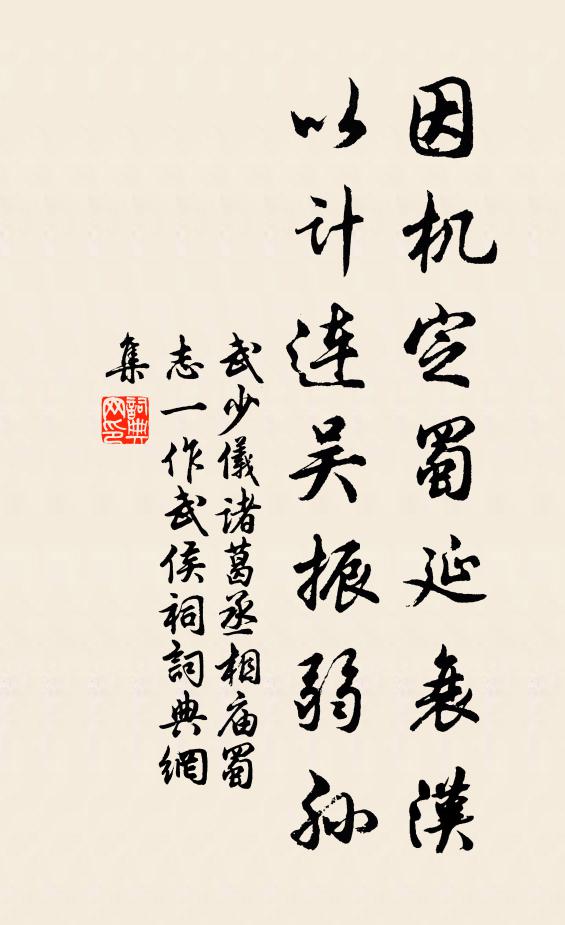 因机定蜀延衰漢
以计連吴振弱孙
武少儀诸葛丞相庙蜀
志一作武侯祠詞典網
集
詞典
网印